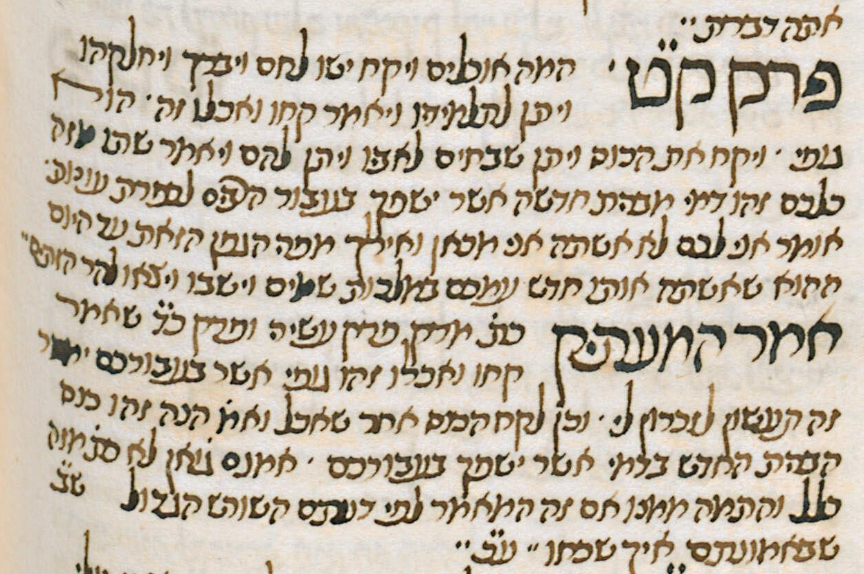 אתה דברת׳׳
פרק ק״ט׳ המה אוכלים ויקח ישו לחם ויברך ויחלקהו
ויתן לתלמידו ויאמר קחו ואכלו זה׳ הוא
גופי׳ ויקח את הכוס ויתן שבחים לאביו ויתן להם ויאמר שתו מזה
כלכם זהו דמי מבהת חדשה אשר ישפך בעבור לכפרת עונות׳
אומר אני לכם לא אשתה אני מכאן ואילך מפה הגפן הזאת עד היום
ההוא שאשתה אותו חדש עמכם במלכות שמים וישבו ויצאו להר הזתים׳׳
אמר המעתיק כת׳ מרק׳ פרק עשיה ופרק כ״ל שאמר
קחו ואכלו זהו גופי אשר בעבורכם
זה תעשון לזכרון לי׳ וכן לקח הכוס אחר שאכל ואמ׳ הנה זהו כוס
הבהת החדש בדמי אשר ישפך בעבורכם׳ אמנם יואן לא מזה
כלל והתמה ממנו אם זה המאמר לפי דעתם השורש הגדול
שבאמונתם איך שכחו׳׳ ע״כ׳׳